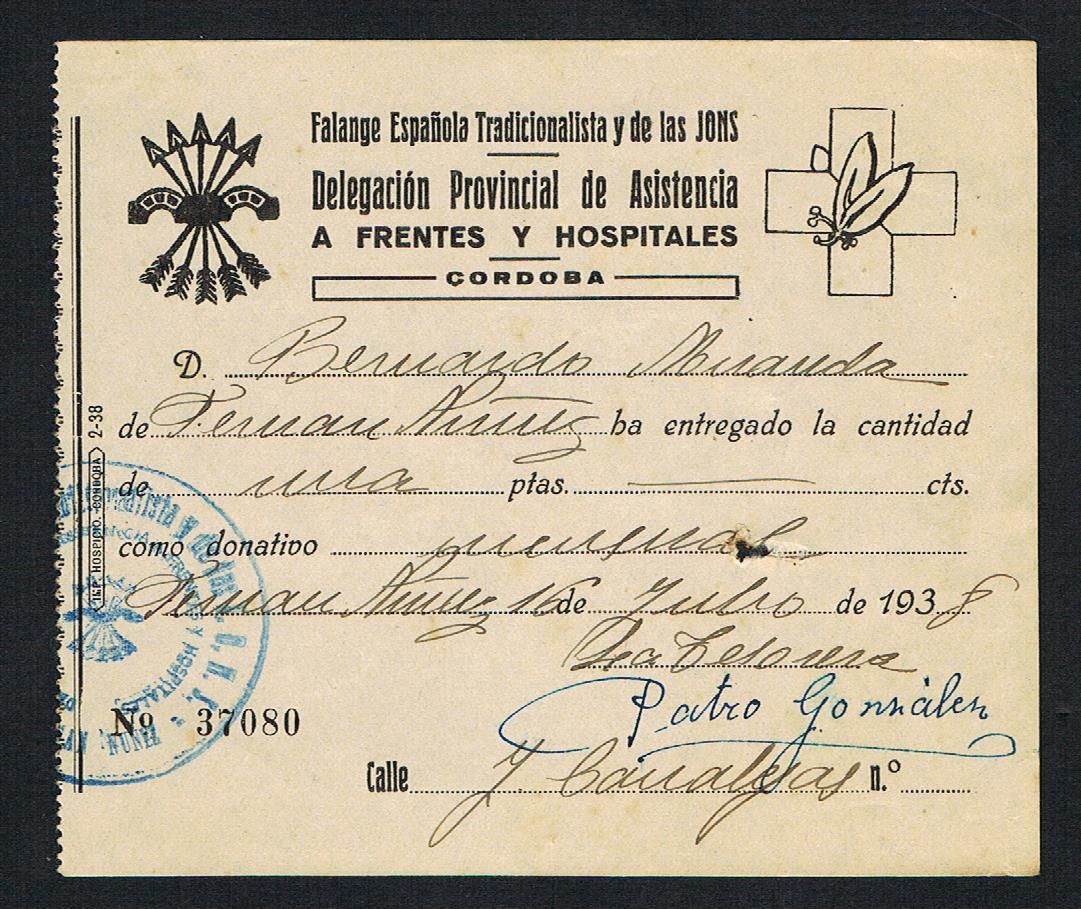 Falange Española Tradicionalista y de las JONS
Delegación Provincial de Asistencia
A FRENTES Y HOSPITALES
CORDOBA
D. Bernardo Miranda
de Fernan Nuñez ha entregado la cantidad
de una ptas. cts.
como donativo mensual
Fernan Nuñez 16 de Julio de 1938
La Tesorera
Patro Gonsàlen
No 37080
Calle J. Canalejas n.º
IMP. HOSPICIO.-CORDOBA 2-38
Y HOSPITALES
NUÑEZ